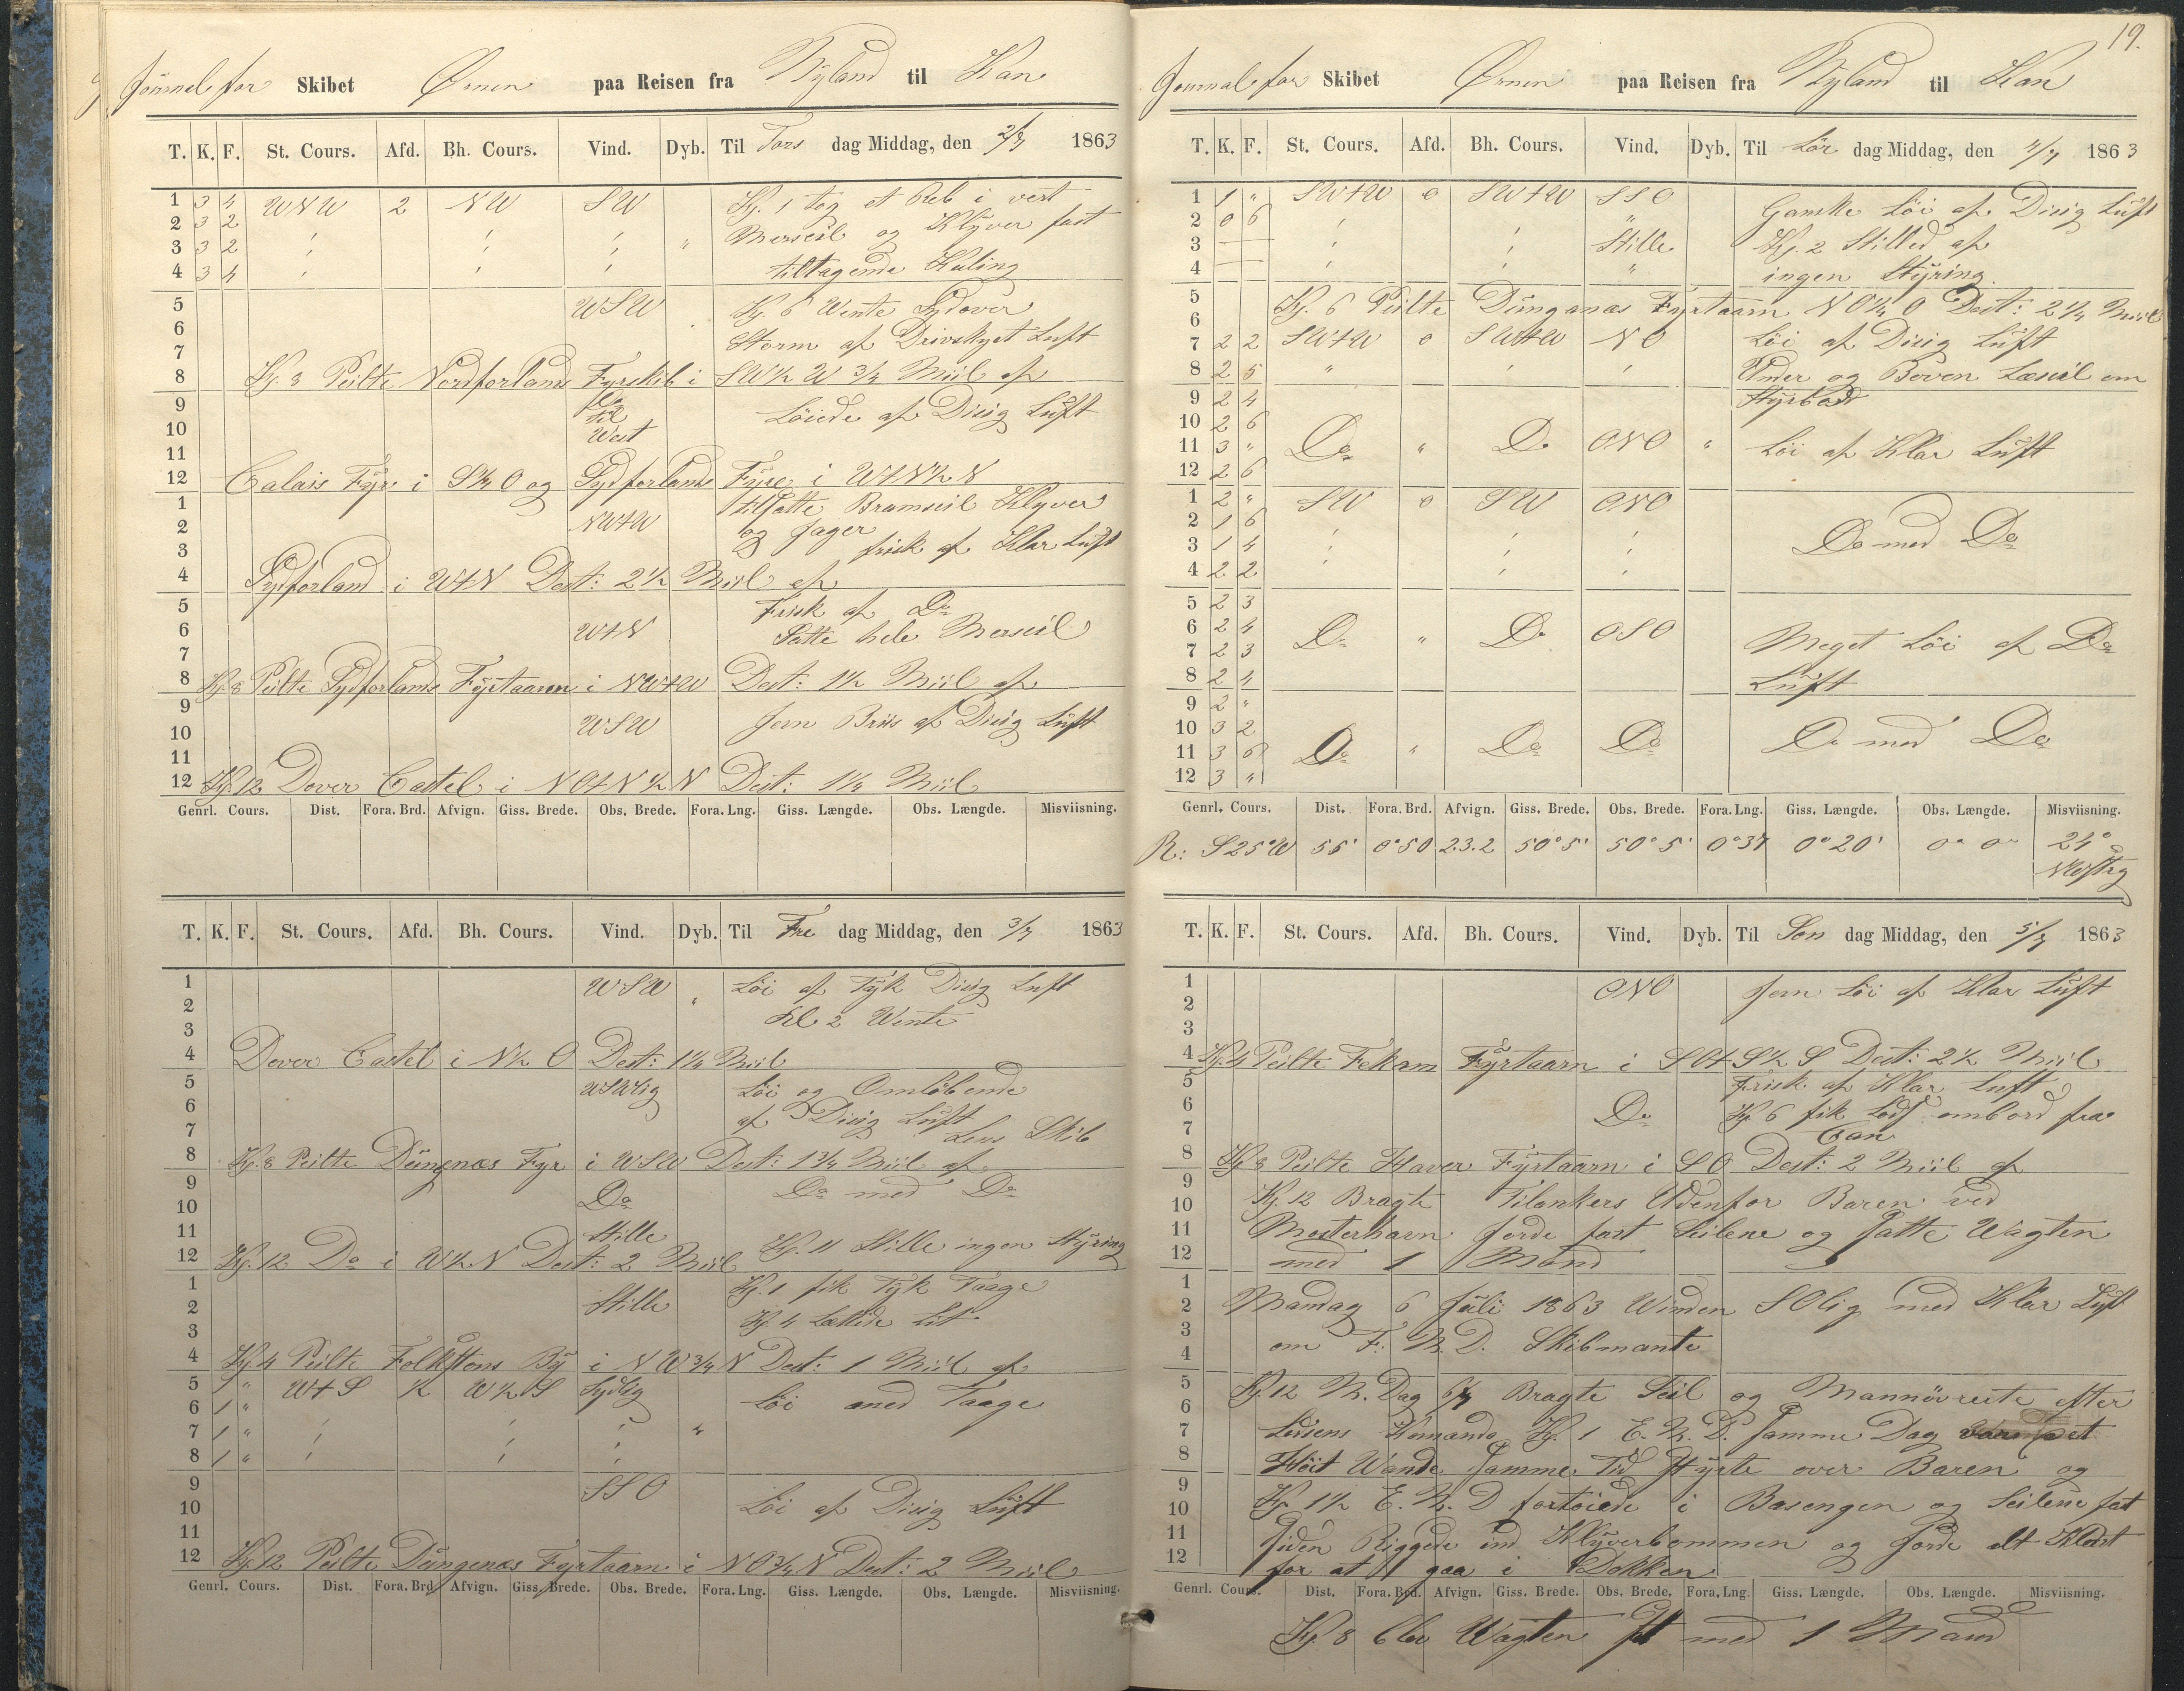 Journal for Skibet Ørnen paa Reisen fra Nyland til Kan
T. K. F. St. Cours. Afd. Bh. Cours. Vind. Dyb. Til Tors dag Middag, den 2/7 1863
1 3 4 WNW 2 NW SW Kg. 1 tog et Reb i vert
2 3 2 " " " " Merseil og Klyver fast
3 3 2 " " "
4 3 4 " " " tiltagende Kuling
5 WSW Kg. 6 Wente Sydover
6 Storm af Drivskyet Luft
7
8 Kg. 8 Peilte Nordforlands Fyrskib i SW½W ¾ Miil af
9 Do Löiede af Disig Luft
10 til
West
11
12 Calais Fyr i S½O og Sydforlands Fyre i WtN½N
1 tilsatte Bramseil Klyver
2 NWtW og Jager
3 frisk af Klar Luft
4 Sydforland i WtN Dest: 2½ Miil af
5 Frisk af Do
6 WtN Satte hele Merseil
7
8 Kg. 8 Peilte Sydforlands Fyrtaarn i NWtW Dest: 1½ Miil af
9
10 WSW Jevn Bris af Disig Luft
11
12 Kg. 12 Dover Castel i NOtN½N Dest: 1¼ Miil
Genrl. Cours. Dist. Fora. Brd. Afvign. Giss. Brede. Obs. Brede. Fora. Lng. Giss. Længde. Obs. Længde. Misviisning.
T. K. F. St. Cours. Afd. Bh. Cours. Vind. Dyb. Til Fre dag Middag, den 3/7 1863
1 WSW " Löi af Tyk Disig Luft
2 Kl 2 Wente
3
4 Dover Castel i N½O Dest: 1¼ Miil
5 WSWlig Löi og Omlöbende
6 af Disig Luft
7 Lens Skib
8 Kg. 8 Peilte Dungnæs Fyr i WSW Dest: 1¾ Miil af
9 Do Do med Do
10
11 Stille Kg. 11 Stille ingen Styring
12 Kg. 12 Do i W½N Dest: 2 Miil
1 Kg. 1 fik Tyk Taage
2 Stille Kg. 4 Lettede Lit
3
4 Kg. 4 Peilte Folkstons By i NW¾N Dest: 1 Miil af
5 1 " WtS ½ W½S Sydlig Löi med Taage
6 1 "
7 1 " " " " "
8 1 " " " "
9 SSO
10 Löi af Disig Luft
11
12 Kg. 12 Peilte Dungenæs Fyrtaarn i NO¾N Dest: 2 Miil
Genrl. Cours. Dist. Fora. Brd. Afvign. Giss. Brede. Obs. Brede. Fora. Lng. Giss. Længde. Obs. Længde. Misviisning.
19.
Journal for Skibet Ørnen paa Reisen fra Nyland til Kan
T. K. F. St. Cours. Afd. Bh. Cours. Vind. Dyb. Til Lör dag Middag, den 4/7 1863
1 1 " SWtW 0 SWtW SSO Ganske Löi af Disig Luft
2 0 6 " " " Kg. 2 Stilled af
3 — " " Stille
4 — " " " ingen Styring
5 Kg. 6 Peilte Dunganæs Fyrtaarn NO½O Dest: 2¼ Miil
6
7 2 2 SWtW 0 SWtW NO Löi af Disig Luft
8 2 5 " " " Under og Boven Læseil om
9 2 4 Styrbord
10 2 6
11 3 " Do " Do ONO " Löi af Klar Luft
12 2 6
1 2 " SW 0 SW ONO
2 1 6 " " " Do med Do
3 1 4 " " "
4 2 2 " "
5 2 3
6 2 4 Do " Do OSO Meget Löi af Do
7 2 3
8 2 4 Luft
9 2 "
10 3 2
11 3 6 Do " Do Do Do med Do
12 3 "
Genrl. Cours. Dist. Fora. Brd. Afvign. Giss. Brede. Obs. Brede. Fora. Lng. Giss. Længde. Obs. Længde. Misviisning.
R: S25°W 55' 0°50 23.2 50°5' 50°5' 0°37 0°20' 0° 0° 24°
T. K. F. St. Cours. Afd. Bh. Cours. Vind. Dyb. Til Sön dag Middag, den 5/7 1863
1 ONO Jevn Löi af Klar Luft
2
3
4 Kg. 4 Peilte Fekam Fyrtaarn i SOtS½S Dest: 2½ Miil
5 Frisk af Klar Luft
6 Do Kg. 6 fik Lods ombord fra
7 Can
8 Kg 8 Peilte Haver Fyrtaarn i SO Dest: 2 Miil af
9
10 Kg. 12 Bragte Tilankers Udenfor Baren ved
11 Mosterhavn Gorde fast Seilene og Satte Wagten
12 med 1 Mand
1
2 Mandag 6 Juli 1863 Winden SOlig med Klar Luft
3 om F. M. D. Skibmante
4
5 Kg. 12 M. Dag 6/7 Bragte Seil og Mannövreite efter
6
7 Lodsens Komando Kg. 1 E. M. D. Samme Dag
8 Höit Wande Samme Tid Styrte over Baren og
9
10 Kg. 1½ E. M. D fortöiede i Basengen og Seilene fast
11 Siden Riggede ind Klyverbommen og Gorde alt Klart
12 for at gaa i Dokken
Genrl. Cours. Dist. Fora. Brd. Afvign. Giss. Brede. Obs. Brede. Fora. Lng. Giss. Længde. Obs. Længde. Misviisning.
Kg. 8 blev Wagten sat med 1 Mand